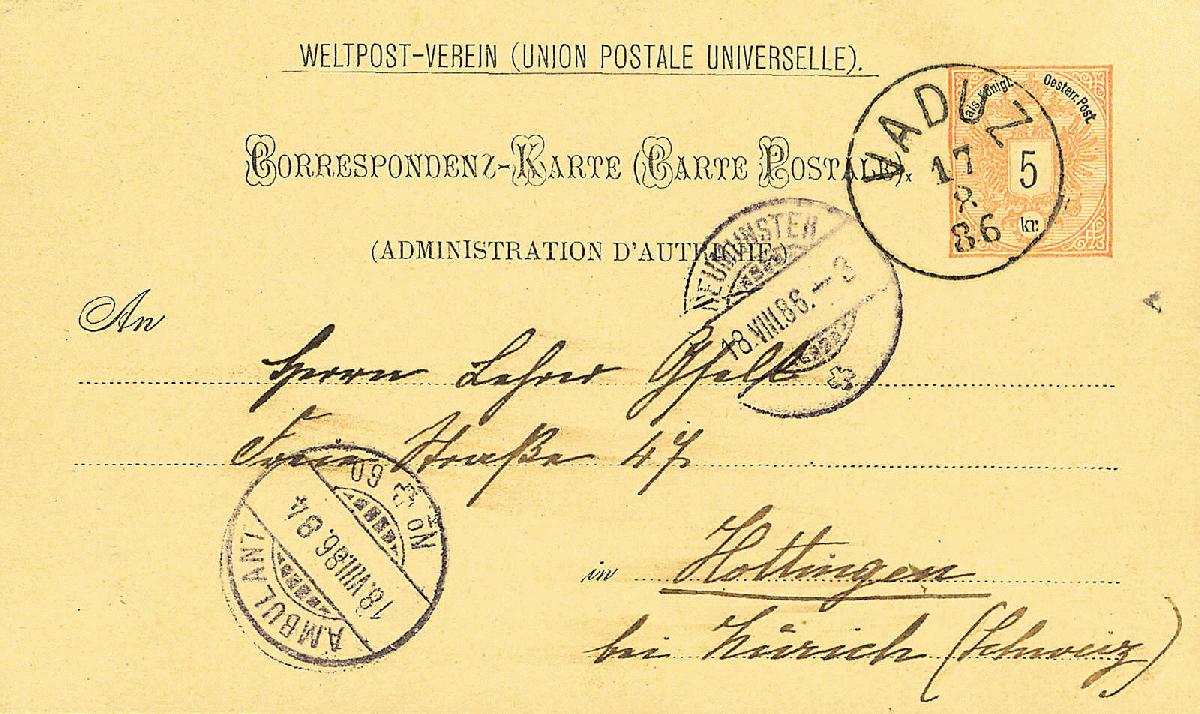 WELTPOST-VEREIN (UNION POSTALE UNIVERSELLE).
Kais. Königl. Oesterr. Post.
5
kr.
VADUZ
17
8
86
CORRESPONDENZ-KARTE (CARTE POSTALE).
(ADMINISTRATION D'AUTRICHE.)
NEUMÜNSTER
18.VIII.86.–3
An
Herrn Lehrer Gfell
Freie Straße 47
AMBULANT
18.VIII.86.84
No 60
in Hottingen
bei Zürich (Schweiz)